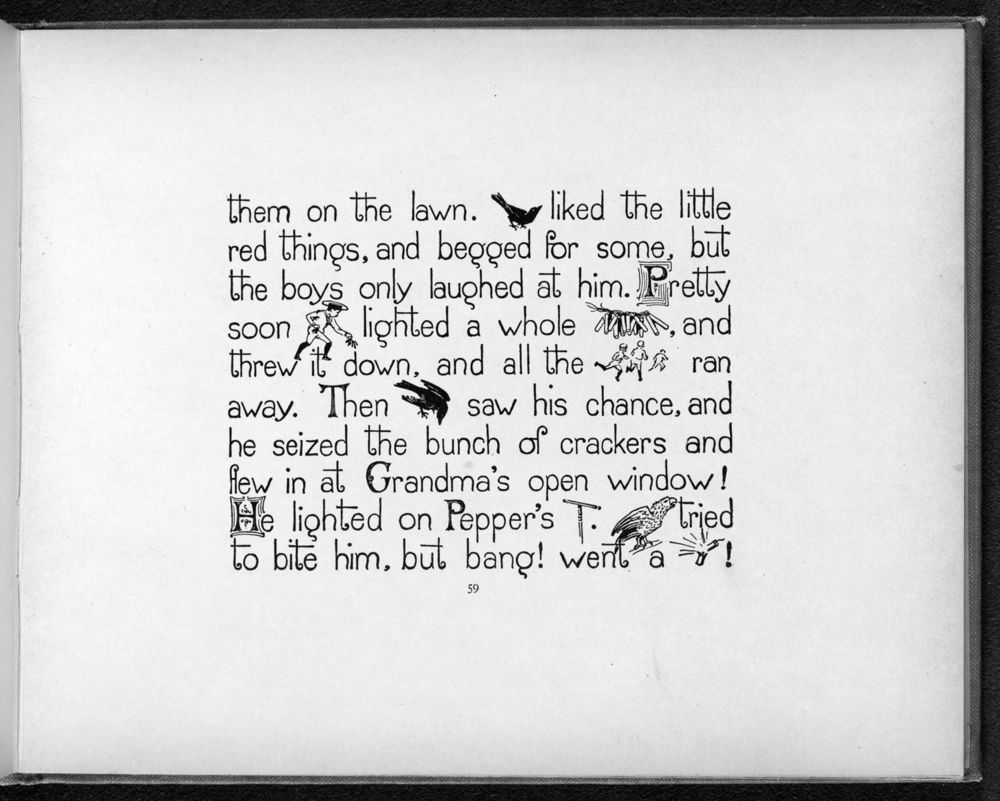 them on the lawn. liked the little
red things, and begged for some, but
the boys only laughed at him. Pretty
soon lighted a whole , and
threw it down, and all the ran
away. Then saw his chance, and
he seized the bunch of crackers and
flew in at Grandma's open window!
He lighted on Pepper's . tried
to bite him, but bang! went a !
59